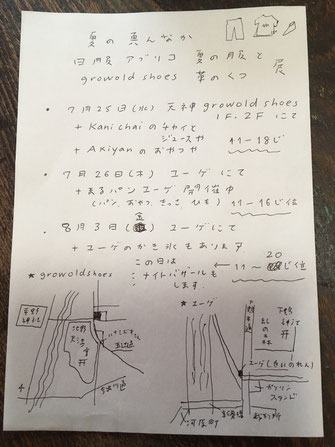 夏の真んなか
日月辰 アプリコ 夏の服と
growold shoes 革のくつ 展
• 7月25日(水) 天神 growold shoes
1F.2F にて
+ Kanichai のチャイと
ジュースや
+ Akiyan のおやつや
11-18じ
• 7月26日(木) ユーゲ にて
+ まるパンユーゲ 開催中
(パン、おやつ、きっさ ひも)
11-16じ位
• 8月3日(金) ユーゲ にて
+ ユーゲのかき氷もあります
この日は
ナイトバザールも
します.
← 11-20じ位
★ growoldshoes
平野神社
北野天満宮
★ ユーゲ
下鴨神社
糺の森
ユーゲ(きいのれん)
ガソリンスタンド
河原町